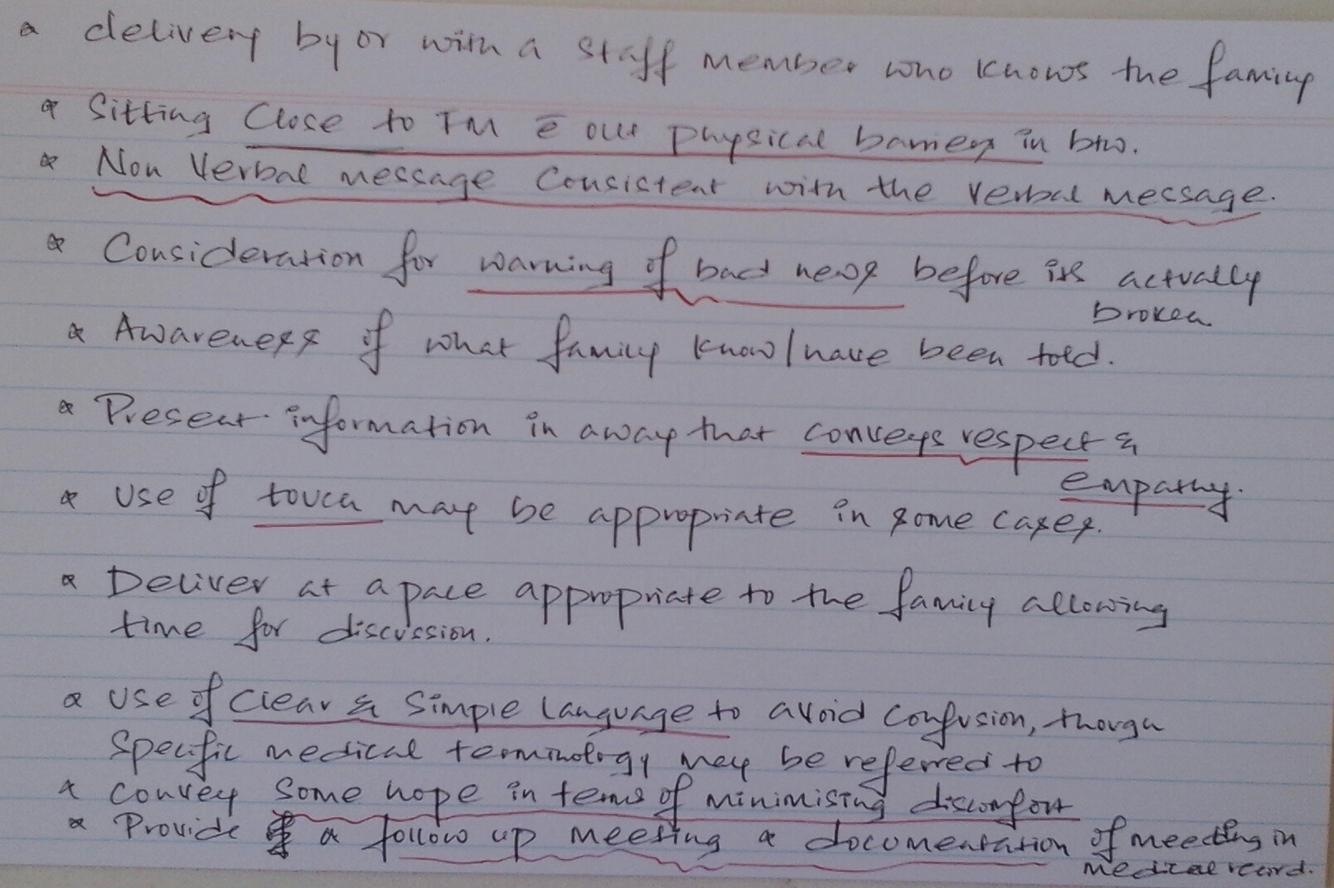 * delivery by or with a staff member who knows the family
* Sitting Close to FM c̄ out physical barriers in btw.
* Non Verbal message Consistent with the verbal message.
* Consideration for warning of bad news before its actually
broken
* Awareness of what family know/have been told.
* Present information in a way that conveys respect &
empathy.
* Use of touch may be appropriate in some cases.
* Deliver at a pace appropriate to the family allowing
time for discussion.
* Use of Clear & Simple Language to avoid confusion, though
Specific medical terminology may be referred to
* Convey Some hope in terms of minimising discomfort
* Provide a follow up meeting & documentation of meeting in
medical record.